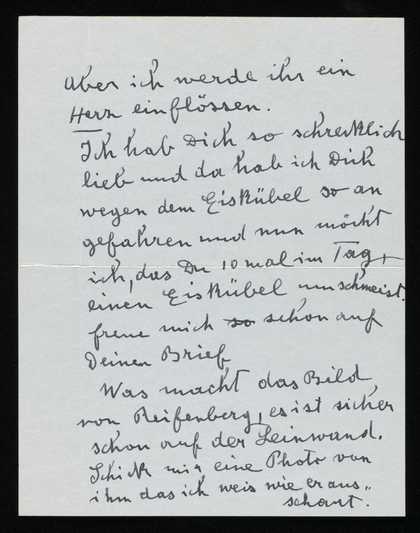 Aber ich werde ihr ein
Herz einflössen.
Ich hab Dich so schrecklich
lieb und da hab ich Dich
wegen dem Eiskübel so an
gefahren und nun möcht
ich, das Du 10 mal im Tag,
einen Eiskübel umschmeist.
freue mich so schon auf
Deinen Brief
Was macht das Bild
von Reifenberg, es ist sicher
schon auf der Leinwand.
Schick mir eine Photo von
ihm das ich weis wie er aus„
schaut.